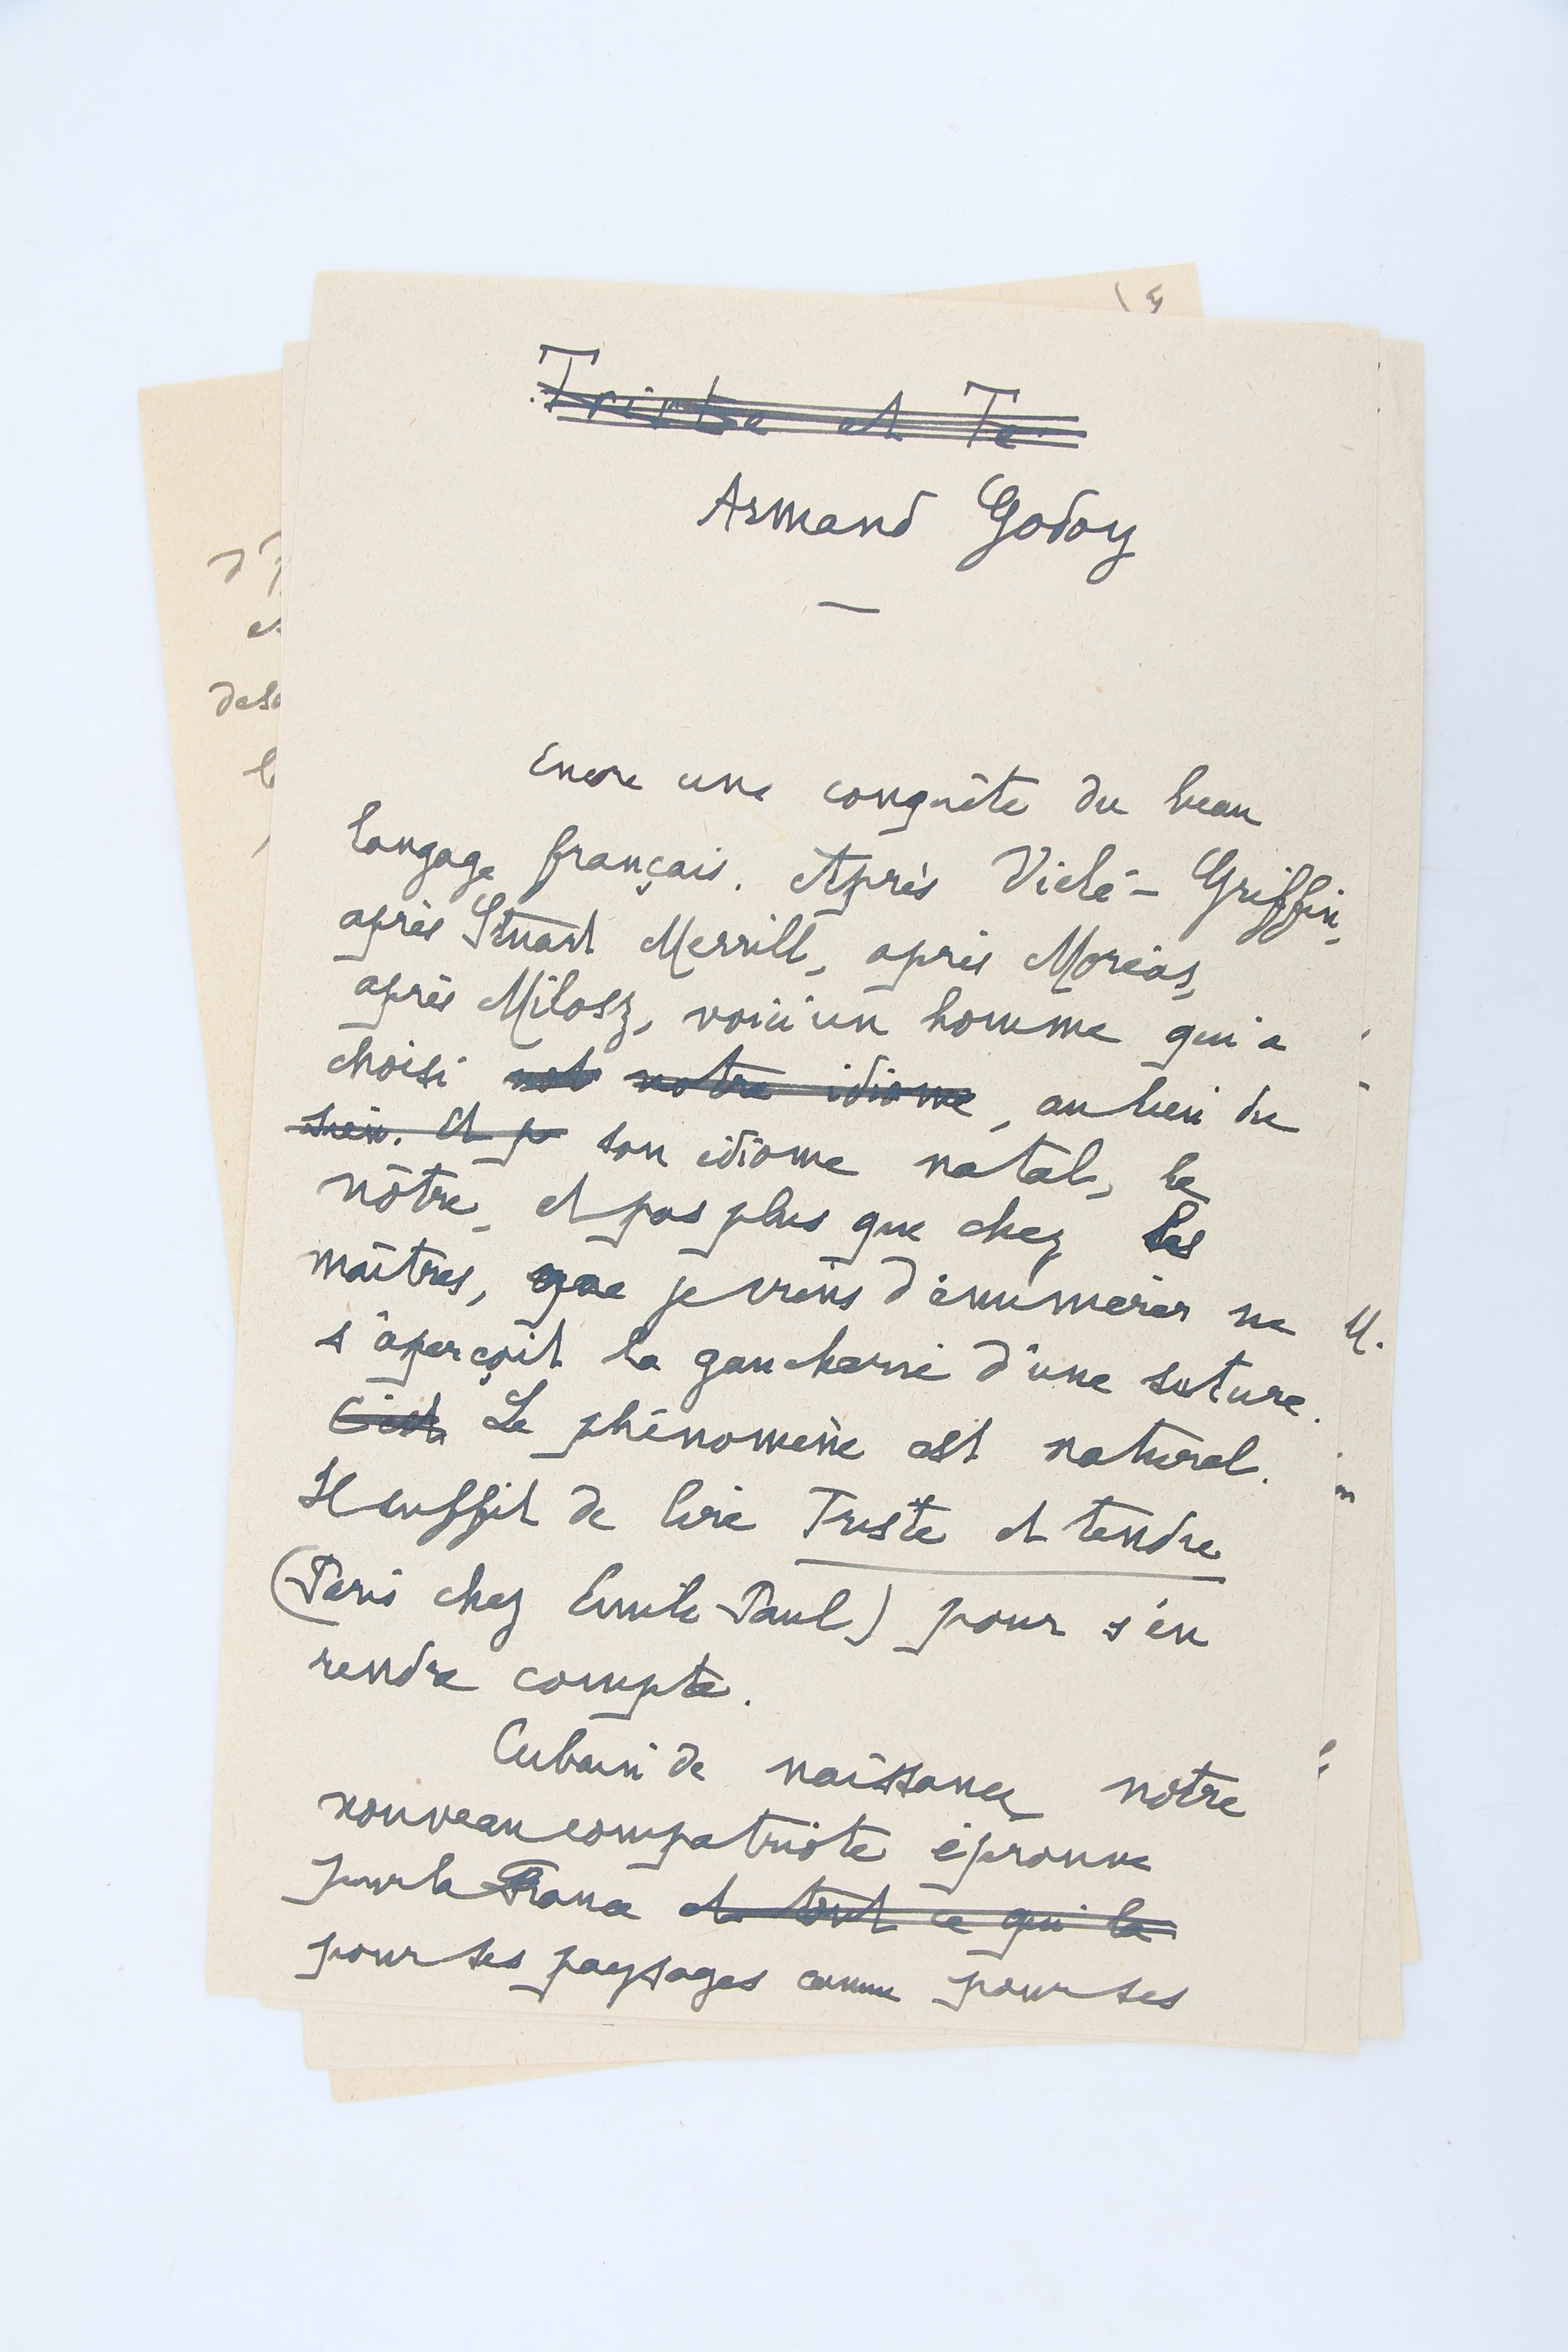 Triste et Te
Armand Godoy
Encore une conquête du beau
langage français. Après Vielé-Griffin,
après Stuart Merrill, après Moréas,
après Milosz, voici un homme qui a
choisi not notre idiome, au lieu du
sien. Et p son idiome natal, le
nôtre, et pas plus que chez les
maîtres, que je viens d'énumérer ne
s'aperçoit la gaucherie d'une suture.
C'est Le phénomène est naturel.
Il suffit de lire Triste et tendre
(Paris chez Emile-Paul) pour s'en
rendre compte.
Cubain de naissance, notre
nouveau compatriote éprouve
pour la France et tout ce qui la
pour ses paysages comme pour ses